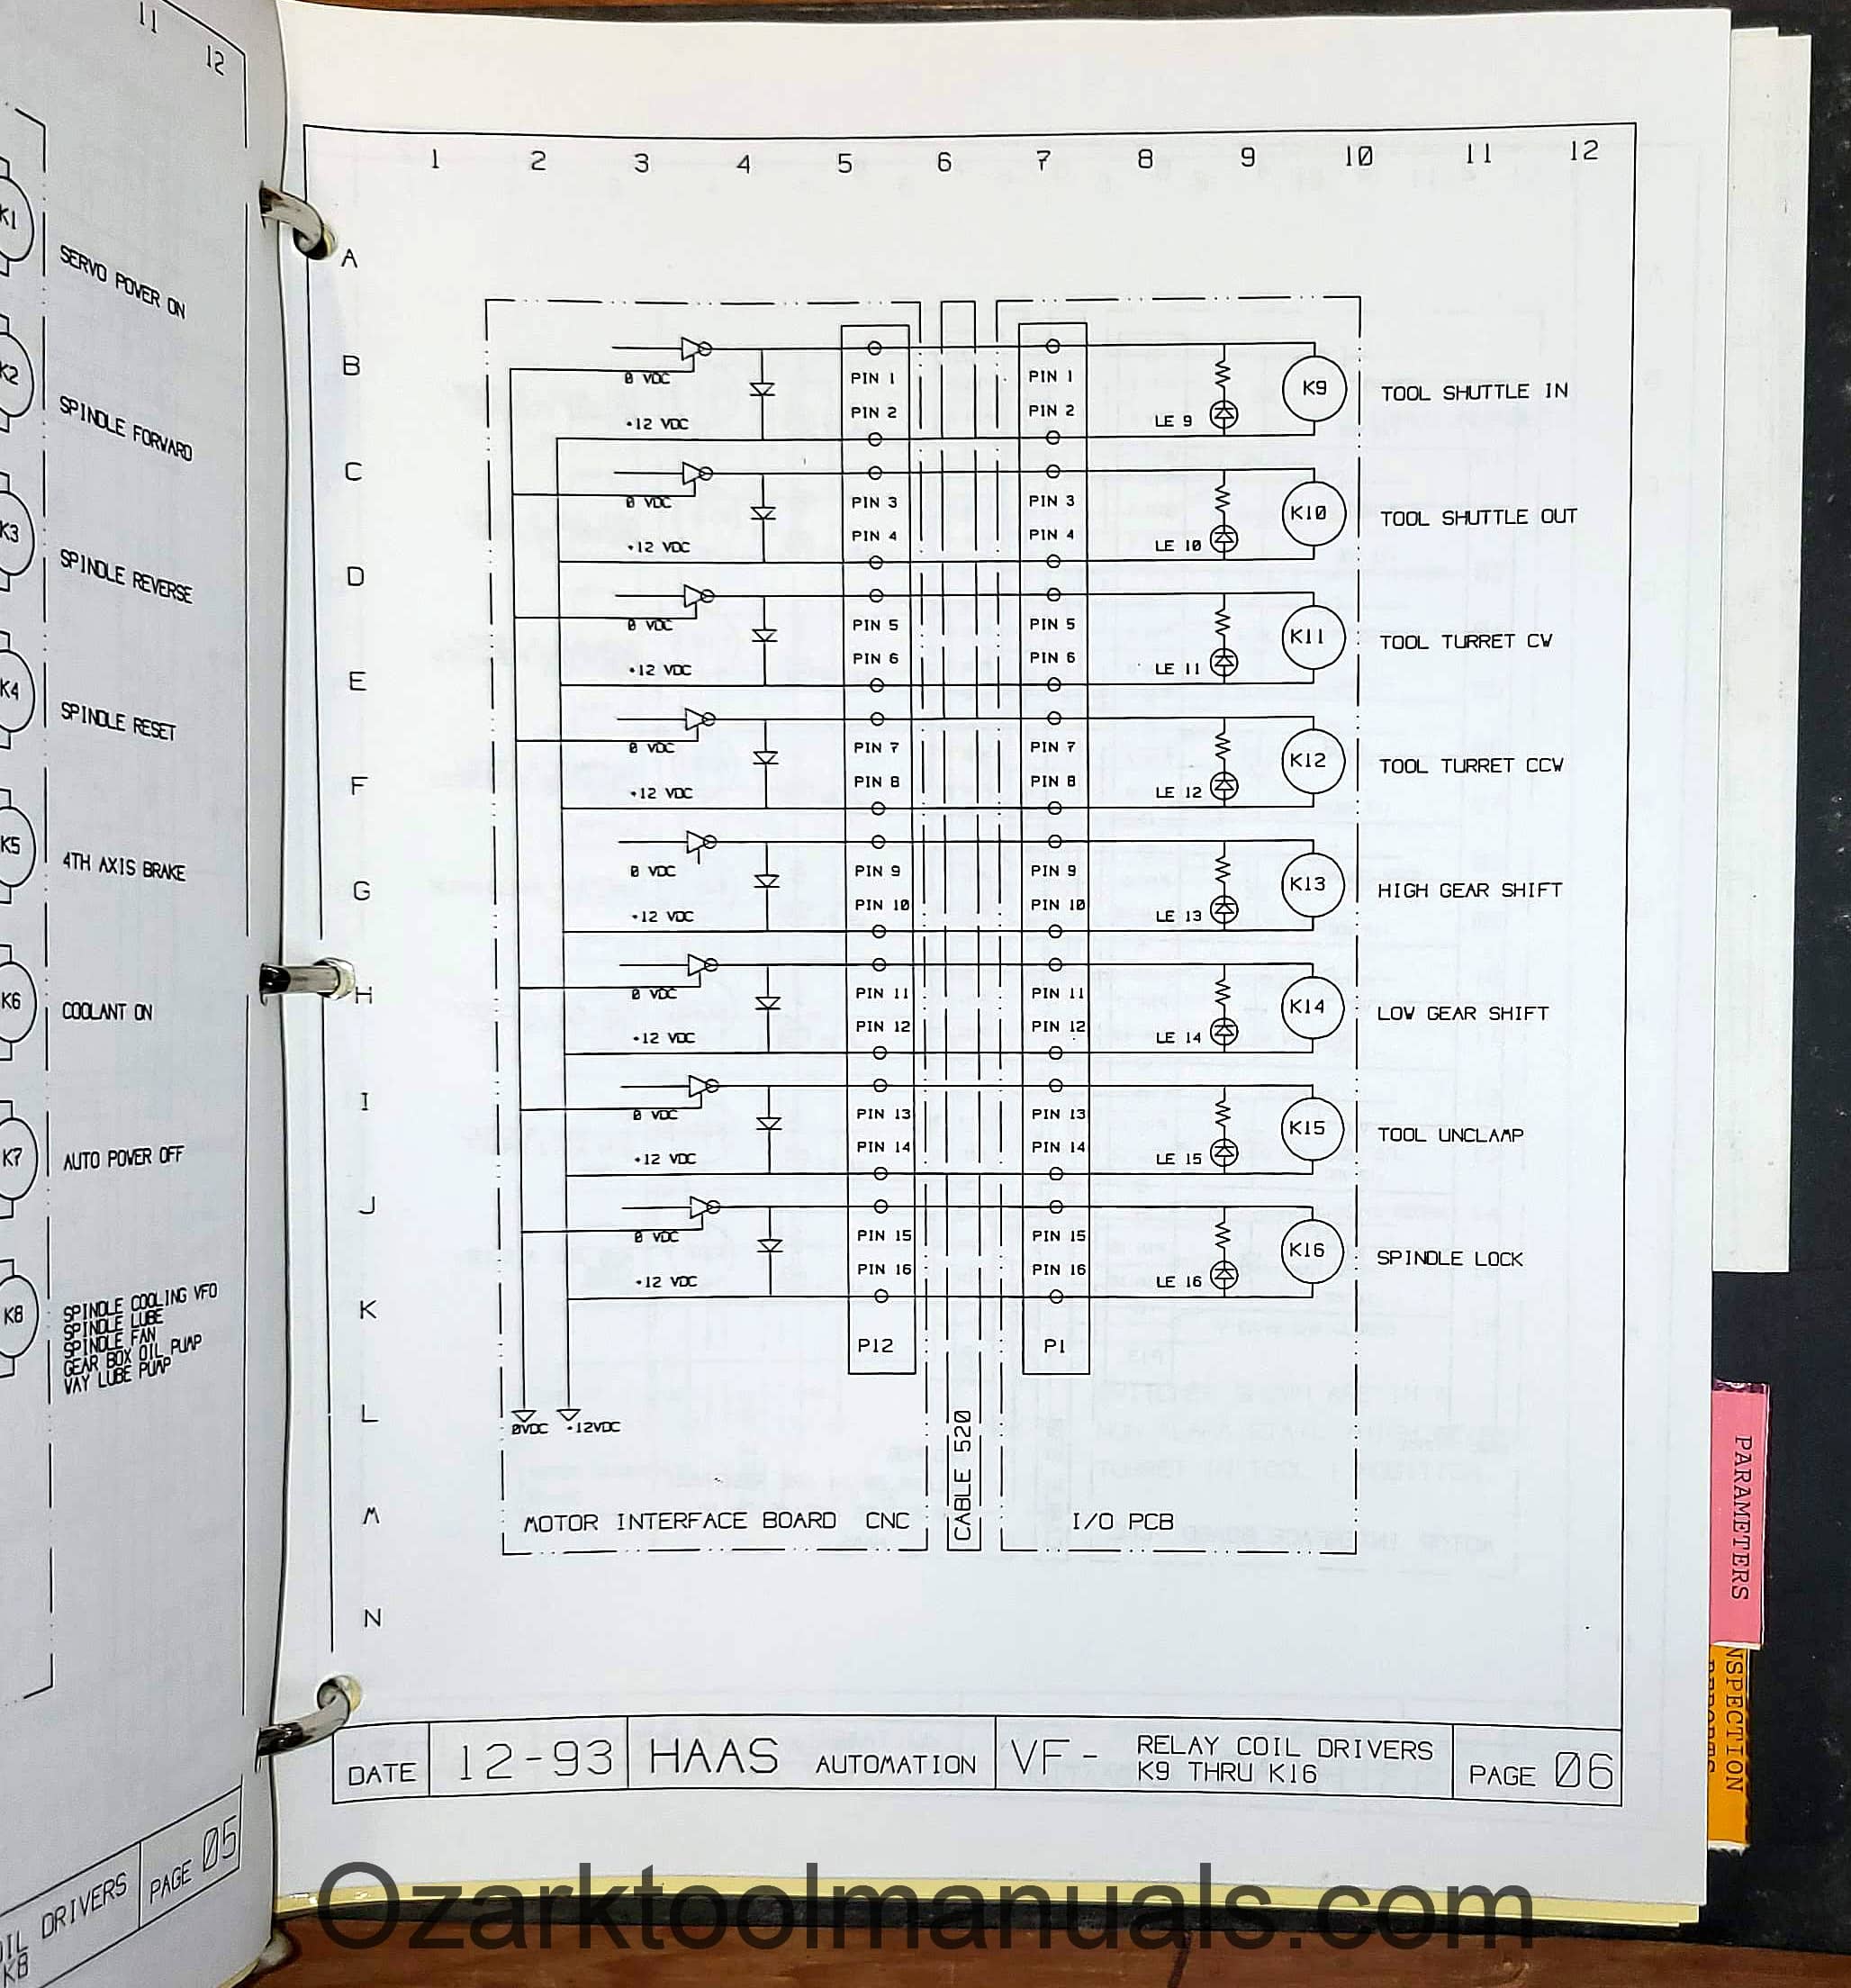 11
12
K1
SERVO POWER ON
K2
SPINDLE FORWARD
K3
SPINDLE REVERSE
K4
SPINDLE RESET
K5
4TH AXIS BRAKE
K6
COOLANT ON
K7
AUTO POWER OFF
K8
SPINDLE COOLING VFO
SPINDLE LUBE
SPINDLE FAN
GEAR BOX OIL PUMP
WAY LUBE PUMP
DRIVERS
K8
PAGE 05
1 2 3 4 5 6 7 8 9 10 11 12
A
B
C
D
E
F
G
H
I
J
K
L
M
N
0 VDC PIN 1 PIN 1 K9 TOOL SHUTTLE IN
+12 VDC PIN 2 PIN 2 LE 9
0 VDC PIN 3 PIN 3 K10 TOOL SHUTTLE OUT
+12 VDC PIN 4 PIN 4 LE 10
0 VDC PIN 5 PIN 5 K11 TOOL TURRET CW
+12 VDC PIN 6 PIN 6 LE 11
0 VDC PIN 7 PIN 7 K12 TOOL TURRET CCW
+12 VDC PIN 8 PIN 8 LE 12
0 VDC PIN 9 PIN 9 K13 HIGH GEAR SHIFT
+12 VDC PIN 10 PIN 10 LE 13
0 VDC PIN 11 PIN 11 K14 LOW GEAR SHIFT
+12 VDC PIN 12 PIN 12 LE 14
0 VDC PIN 13 PIN 13 K15 TOOL UNCLAMP
+12 VDC PIN 14 PIN 14 LE 15
0 VDC PIN 15 PIN 15 K16 SPINDLE LOCK
+12 VDC PIN 16 PIN 16 LE 16
P12 P1
0VDC +12VDC
CABLE 520
MOTOR INTERFACE BOARD CNC
I/O PCB
DATE 12-93 HAAS AUTOMATION VF- RELAY COIL DRIVERS
K9 THRU K16
PAGE 06
PARAMETERS
Ozarktoolmanuals.com